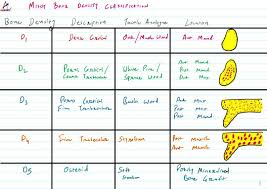 Misch Bone Density Classification
Bone Density Description Tactile Analogue Location
D1 Dense Cortical Oak / Maple Wood Ant. Mand.
D2 Porous Cortical / Coarse Trabeculae White Pine / Spruce Wood Ant. Mand. Post. Mand. Ant. Max.
D3 Porous Cortical Fine Trabeculae Balsa Wood Ant. Max. Post. Max. Post. Mand.
D4 Fine Trabeculae Styrofoam Post. Max.
D5 Osteoid Soft Poorly Mineralised Bone Grafts